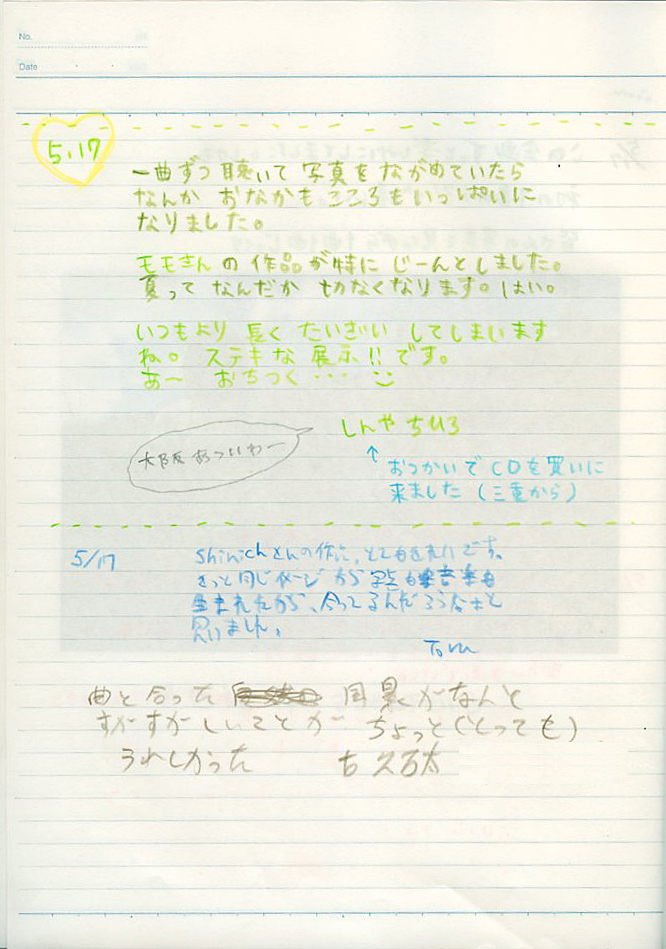 No.
Date
5.17
一曲ずつ聴いて写真をながめていたら
なんか おなかもこころもいっぱいに
なりました。
モモさんの作品が特にじーんとしました。
夏って なんだか 切なくなります。はい。
いつもより 長く たいざい してしまいます
ね。 ステキな 展示!! です。
あ〜 おちつく・・・
しんや ちひろ
大阪あついわー
↑
おつかいでCDを買いに
来ました(三重から)
5/17
Shinichさんの作品、とてもきれいです。
きっと同じイメージから写真も音楽も
生まれたから、合ってるんだろうなぁと
思いました。
Toru
曲と合った 風景がなんと
すがすがしいことか ちょっと(とっても)
うれしかった